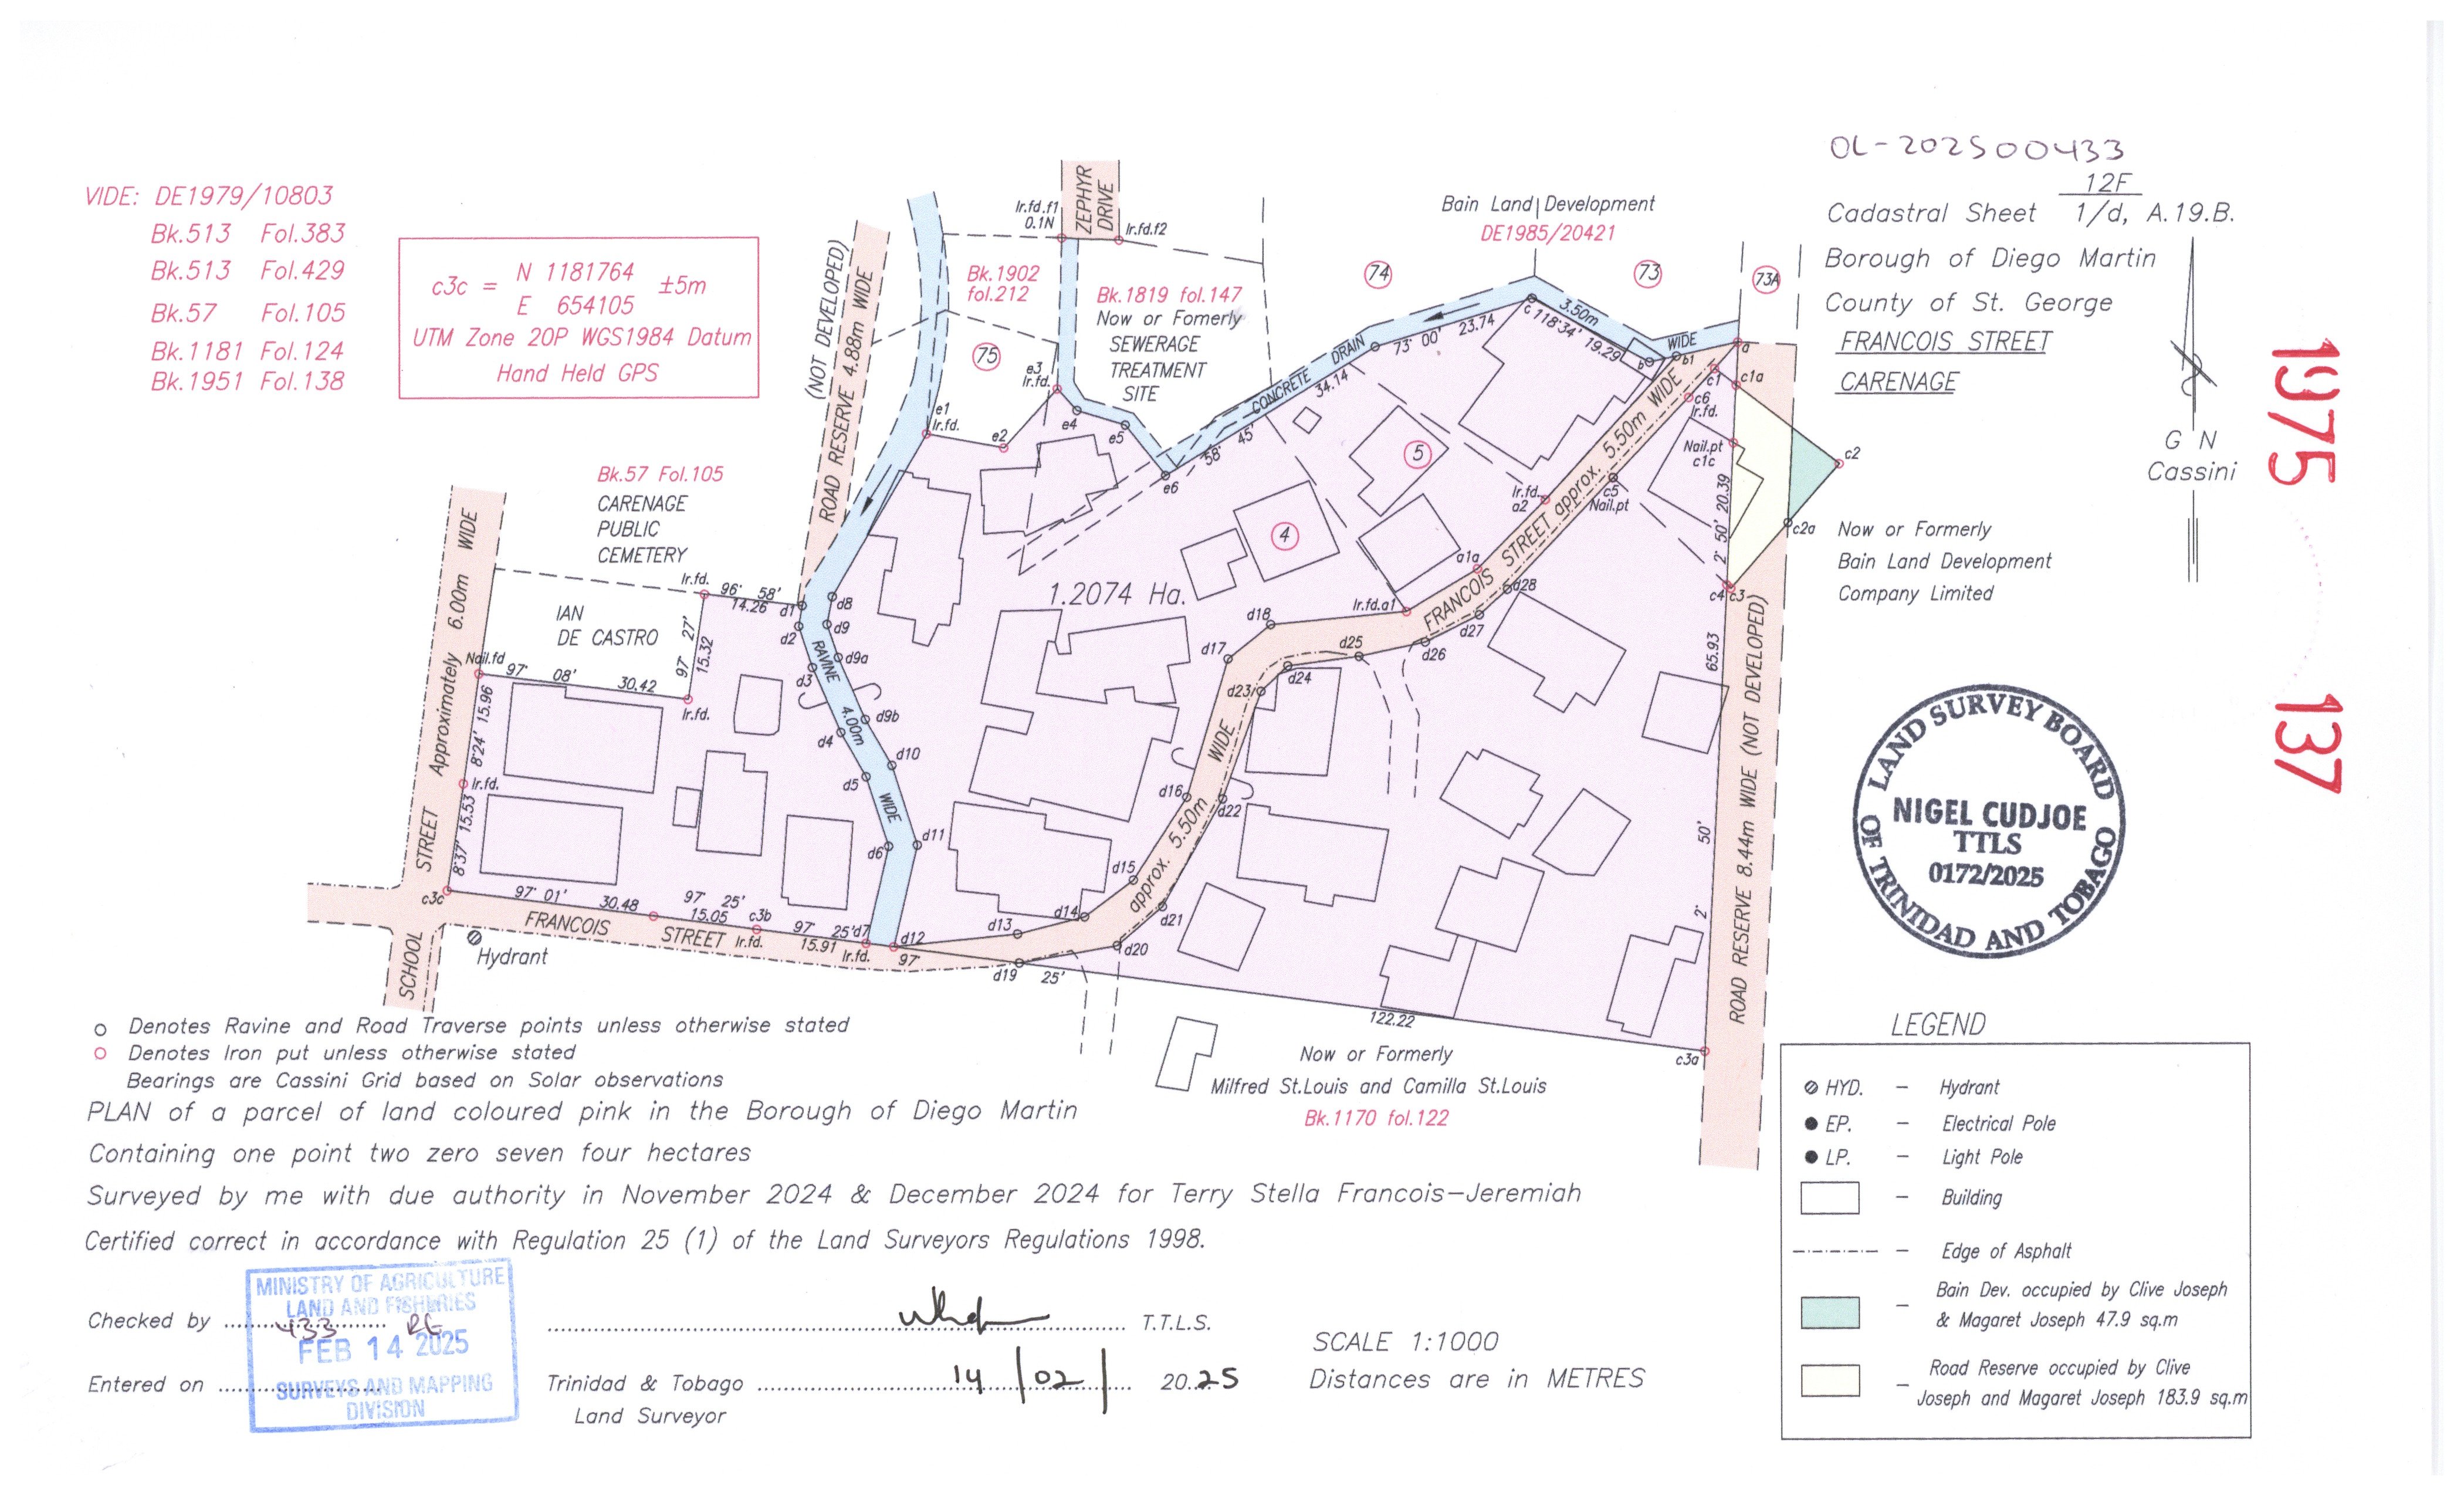 OL-202500433
12F
Cadastral Sheet 1/d, A.19.B.
Borough of Diego Martin
County of St. George
FRANCOIS STREET
CARENAGE
1975 137
G N
Cassini
VIDE: DE1979/10803
Bk.513 Fol.383
Bk.513 Fol.429
Bk.57 Fol.105
Bk.1181 Fol.124
Bk.1951 Fol.138
c3c = N 1181764 ±5m
E 654105
UTM Zone 20P WGS1984 Datum
Hand Held GPS
(NOT DEVELOPED)
ROAD RESERVE 4.88m WIDE
Ir.fd.f1
0.1N
ZEPHYR
DRIVE
Ir.fd.f2
Bk.1902
fol.212
75
Bk.1819 fol.147
Now or Fomerly
SEWERAGE
TREATMENT
SITE
Bain Land Development
DE1985/20421
74
73
73A
e1
Ir.fd.
e2
e3
Ir.fd.
e4
e5
e6
CONCRETE DRAIN
3.50m WIDE
58° 45' 34.14
73° 00' 23.74
c
118°34' 19.29
b
b1
a
c1
c1a
c6
Ir.fd.
Nail.pt
c1c
c2
c2a
c5
Nail.pt
Ir.fd.
a2
a1a
Ir.fd.a1
2° 50' 20.39
c4
c3
Now or Formerly
Bain Land Development
Company Limited
Bk.57 Fol.105
CARENAGE
PUBLIC
CEMETERY
Ir.fd.
96° 58'
14.26
IAN
DE CASTRO
97° 27'
15.32
Nail.fd
97° 08' 30.42
Ir.fd.
SCHOOL STREET Approximately 6.00m WIDE
8°24' 15.96
Ir.fd.
8°37' 15.53
c3c
97° 01' 30.48
97° 25'
15.05
c3b
Ir.fd.
97° 25'
15.91
d7
Ir.fd.
FRANCOIS STREET
Hydrant
RAVINE 4.00m WIDE
d1
d2
d3
d4
d5
d6
d8
d9
d9a
d9b
d10
d11
d12
d13
d14
d15
d16
d17
d18
d19
d20
d21
d22
d23
d24
d25
d26
d27
d28
1.2074 Ha.
4
5
FRANCOIS STREET approx. 5.50m WIDE
approx. 5.50m WIDE
97° 25' 122.22
c3a
2° 50' 65.93
ROAD RESERVE 8.44m WIDE (NOT DEVELOPED)
Now or Formerly
Milfred St.Louis and Camilla St.Louis
Bk.1170 fol.122
LAND SURVEY BOARD
OF TRINIDAD AND TOBAGO
NIGEL CUDJOE
TTLS
0172/2025
Denotes Ravine and Road Traverse points unless otherwise stated
Denotes Iron put unless otherwise stated
Bearings are Cassini Grid based on Solar observations
PLAN of a parcel of land coloured pink in the Borough of Diego Martin
Containing one point two zero seven four hectares
Surveyed by me with due authority in November 2024 & December 2024 for Terry Stella Francois-Jeremiah
Certified correct in accordance with Regulation 25 (1) of the Land Surveyors Regulations 1998.
Checked by
433
Entered on
MINISTRY OF AGRICULTURE
LAND AND FISHERIES
FEB 14 2025
SURVEYS AND MAPPING
DIVISION
T.T.L.S.
Trinidad & Tobago 14/02/ 20.25
Land Surveyor
SCALE 1:1000
Distances are in METRES
LEGEND
HYD. – Hydrant
EP. – Electrical Pole
LP. – Light Pole
– Building
– Edge of Asphalt
– Bain Dev. occupied by Clive Joseph
& Magaret Joseph 47.9 sq.m
– Road Reserve occupied by Clive
Joseph and Magaret Joseph 183.9 sq.m